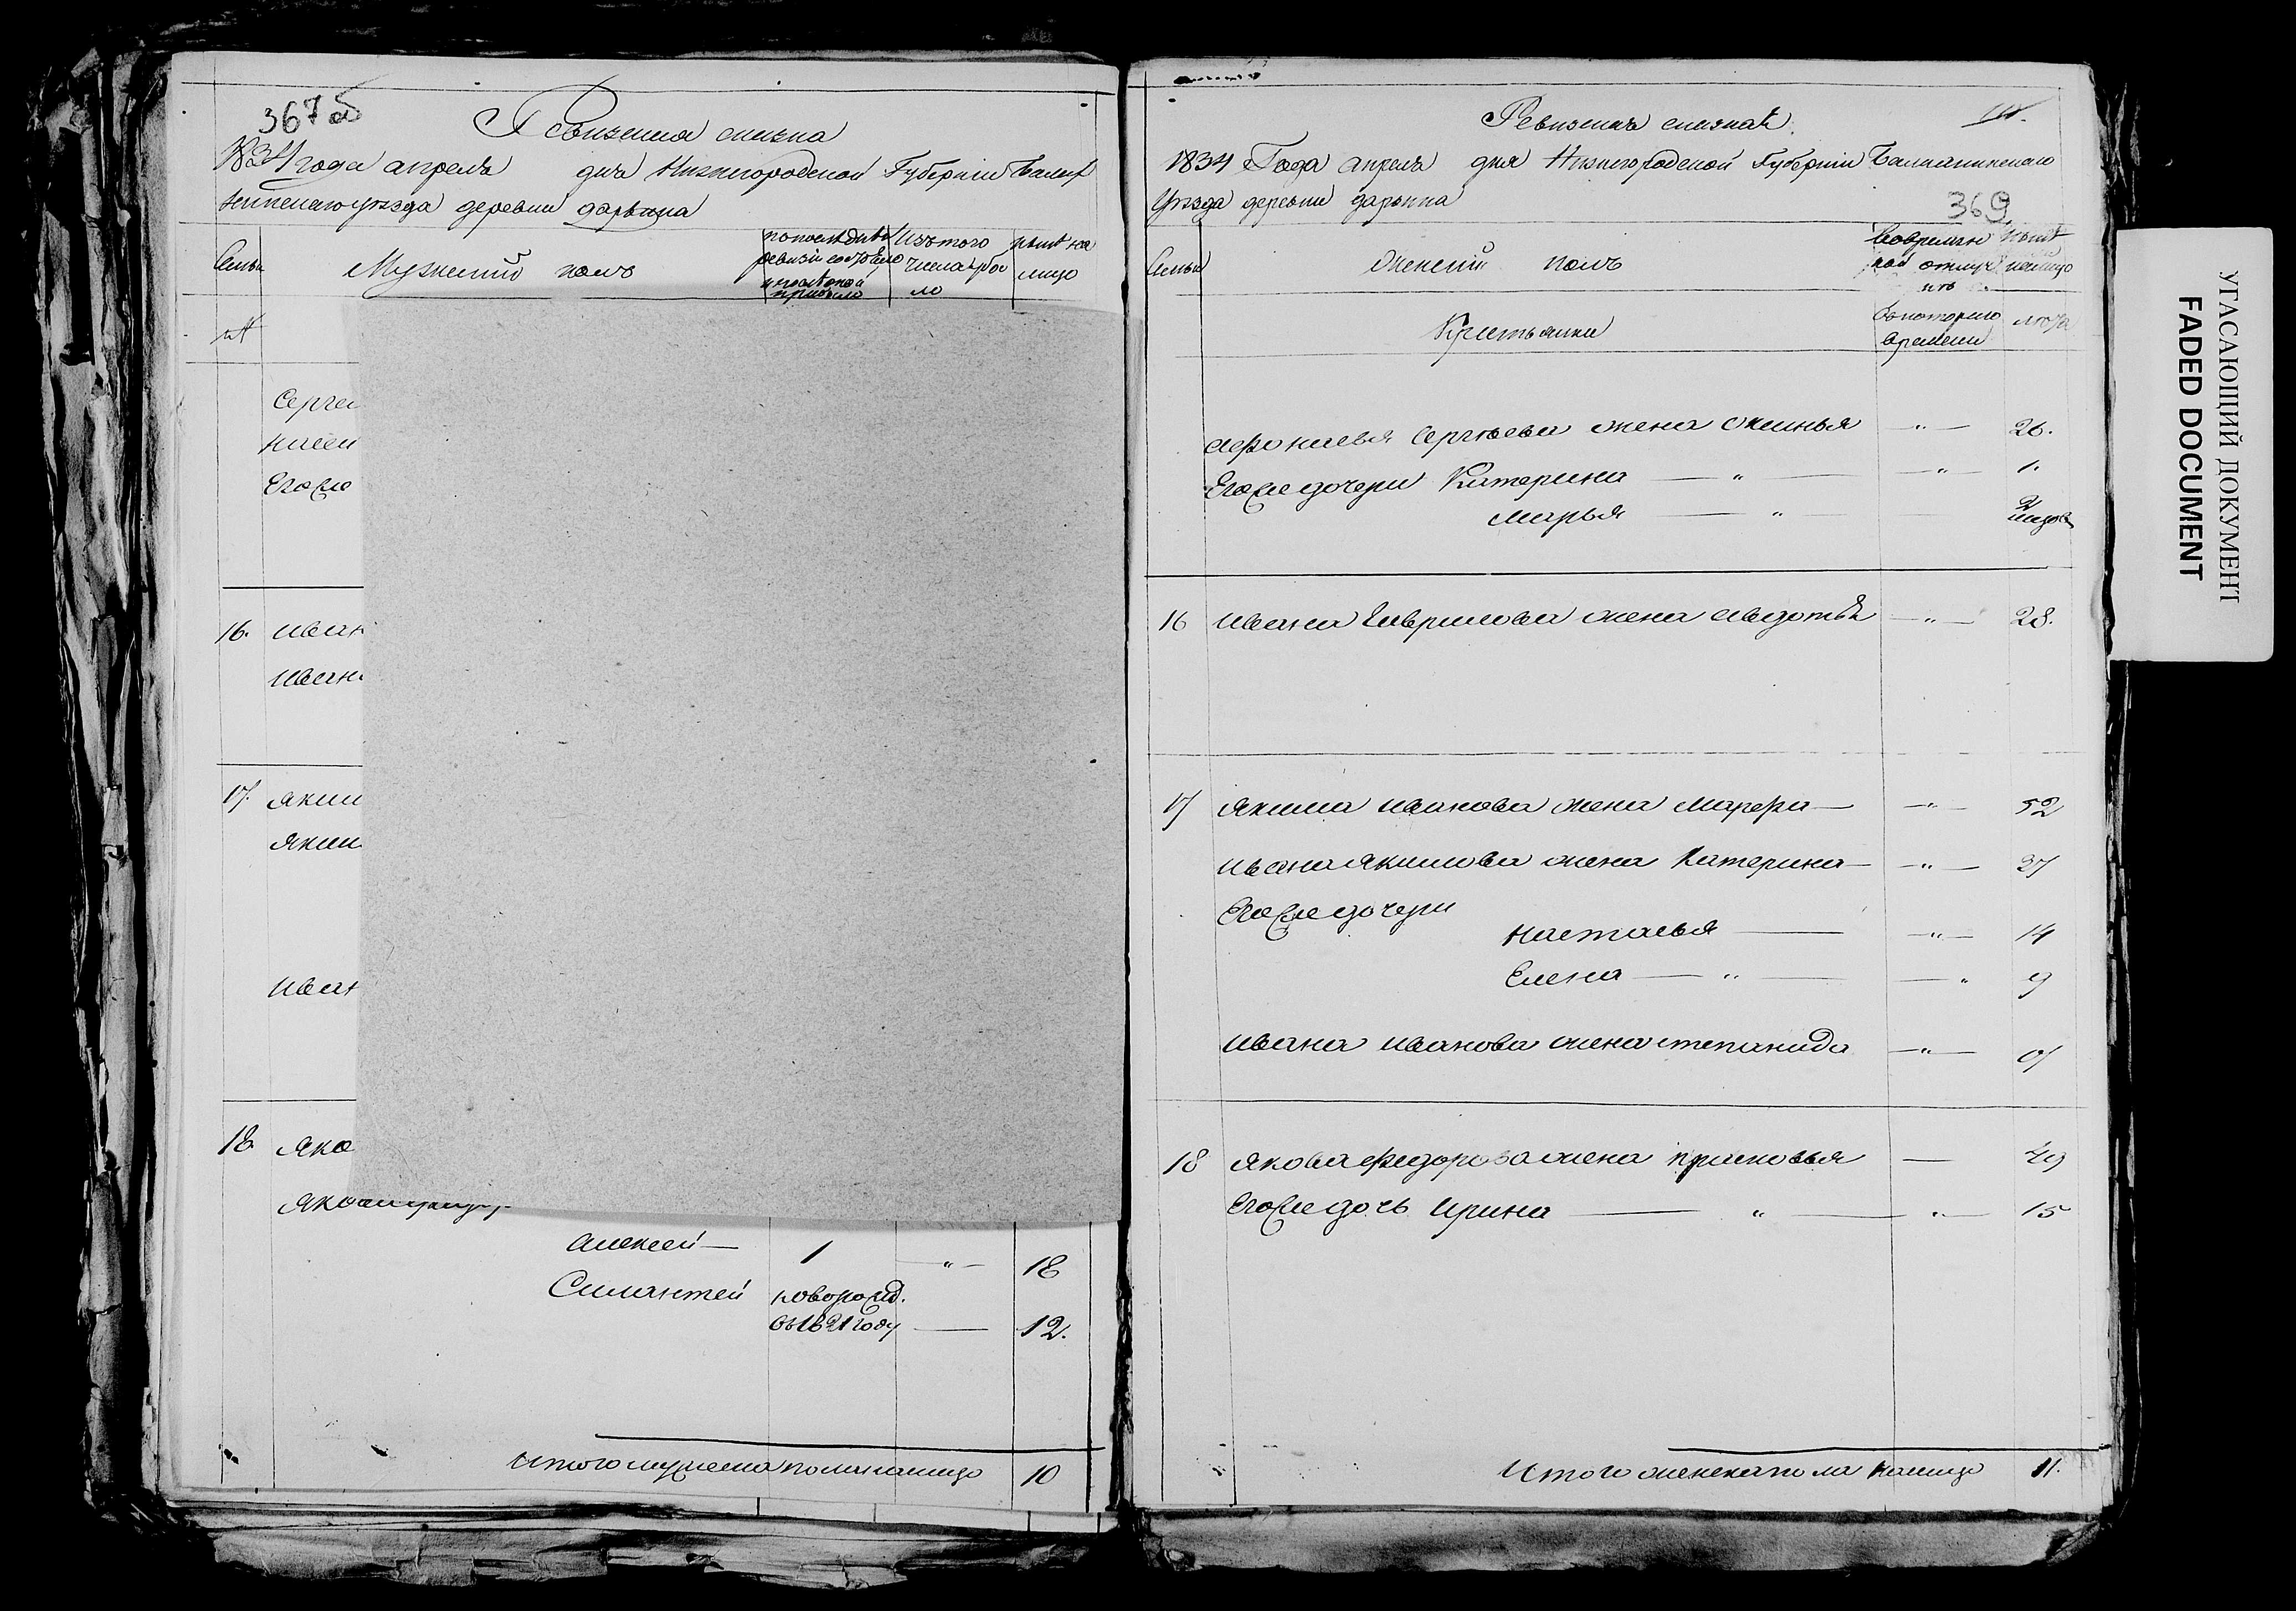 367 об
Ревизская сказка
1834 года апреля дня Нижегородской Губернии Балах
нинскаго уезда деревни дарьина
Семьи Мужеский полъ по последней ревизии состояло и после оной прибыло Изъ того числа выбыло ныне на лицо
№
Серге
Егоже
16. Иван
Иван
17. Яким
Яким
Иван
18 Яко
Якова
Алексей — 1 — " — 18
Силантей новорожд.
въ 1821 году — 12.
Итого мужеска пола налицо 10
Ревизская сказка
1834 Года апреля дня Нижегородской Губернии Балахнинскаго
Уезда деревни дарьина
369
Семьи Женский полъ Во временной отлучке ныне налицо
Крестьянки Съ котораго времени лета
афонасья Сергеева жена Аксинья — " — 26.
Егоже дочери Катерина — " — — " — 1.
Марья — " — —
16 Ивана Гаврилова жена авдотья — " — 28.
17 Якима Иванова жена марфа — — " — 52
Ивана Якимова жена Катерина — — " — 37
Егоже дочери
настасья — — " — 14
Елена — " — — " 9
Ивана Иванова жена степанида — " —
18 Якова Федорова жена прасковья — 49
Егоже дочь Ирина — " — " — 15
Итого женска пола налицо 11.
УГАСАЮЩИЙ ДОКУМЕНТ
FADED DOCUMENT